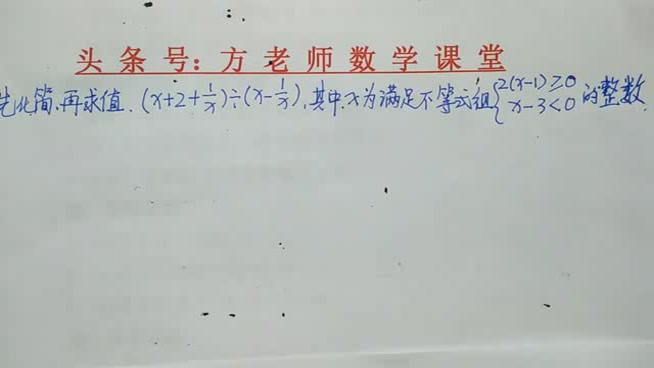 头条号：方老师数学课堂
先化简，再求值．(x+2+1/x)÷(x-1/x)，其中x为满足不等式组{2(x-1)≥0 x-3<0 的整数．